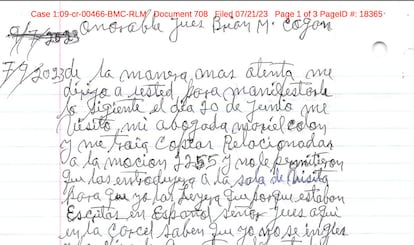 Case 1:09-cr-00466-BMC-RLM Document 708 Filed 07/21/23 Page 1 of 3 PageID #: 18365
7/7/2023 Onorable Jues Brian M. Cogan
7/7/2023 de la manera mas atenta me
dirijo a usted para manifestarle
lo sigiente el dia 20 de Junio me
visito mi abogada mariel colon
y me traia Coptas Relacionadas
a la mocion 2255 y no le permitieron
que las entrodujera a la sala de visita
Para que yo las leyera que porque estaban
Escritas en Español Señor Jues aqui
en la Carcel saben que yo no se ingles